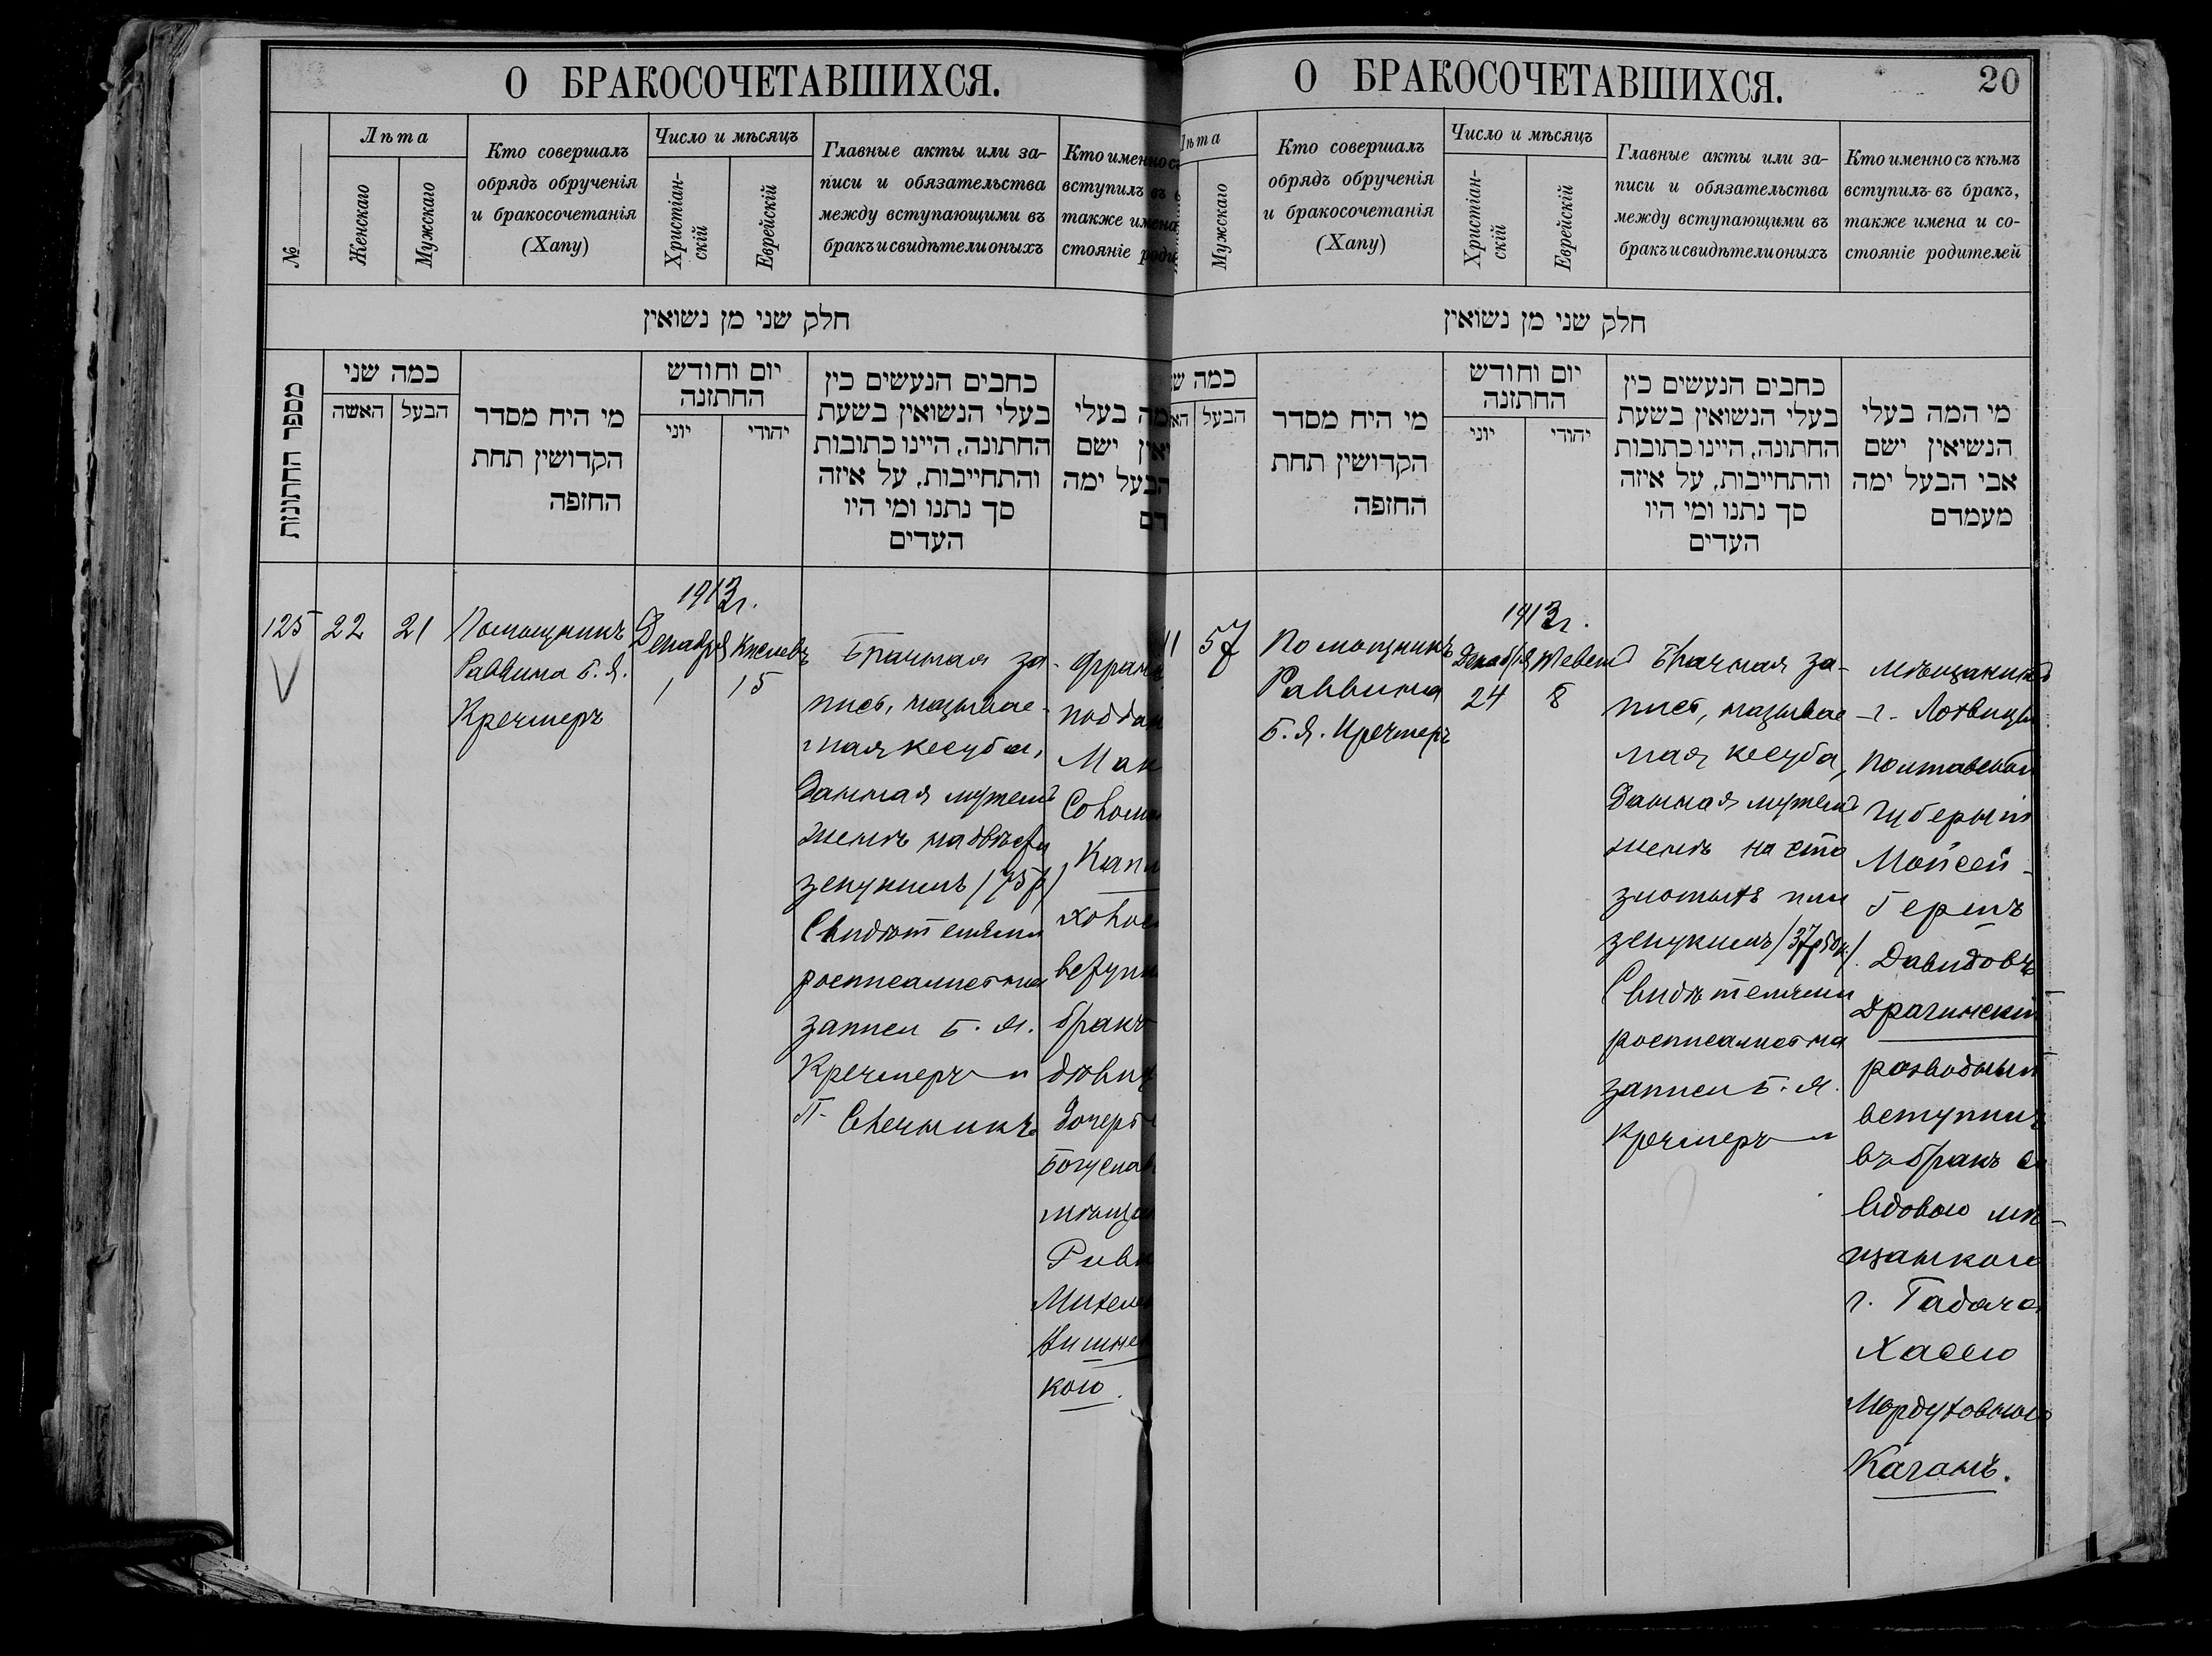 О БРАКОСОЧЕТАВШИХСЯ.
№
Лѣта
Женскаго
Мужскаго
Кто совершалъ
обрядъ обрученія
и бракосочетанія
(Хапу)
Число и мѣсяцъ
Христіан-
скій
Еврейскій
Главные акты или за-
писи и обязательства
между вступающими въ
бракъ и свидѣтели оныхъ
Кто именно съ
вступилъ въ
также имена
стояніе роди
חלק שני מן נשואין
מספר החתונות
כמה שני
האשה
הבעל
מי היח מסדר
הקדושין תחת
החזפה
יום וחודש
החתזנה
יוני
יהודי
כחבים הנעשים כין
בעלי הנשואין בשעת
החתונה, היינו כתובות
והתחייבות, על איזה
סך נתנו ומי היו
העדים
מה בעלי
יאין ישם
הבעל ימה
דם
1913 г.
125
22
21
Помощникъ
Раввина Б. Я.
Кречмеръ
Декабря
1
Кислевъ
15
Брачная за-
пись, называе-
мая кесуба,
данная мужемъ
женѣ на двѣсти
зекукимъ (75 р)
Свидѣтелями
росписались на
записи Б. Я.
Кречмеръ и
П. Свечникъ
Франц
поддан
Мак
Соломо
Капл
холос
вступи
бракъ
дѣвиц
дочерь
Богуслав
мѣщан
Ривк
Михеле
Вишнев
кою.
О БРАКОСОЧЕТАВШИХСЯ.
20
Лѣта
Мужскаго
Кто совершалъ
обрядъ обрученія
и бракосочетанія
(Хапу)
Число и мѣсяцъ
Христіан-
скій
Еврейскій
Главные акты или за-
писи и обязательства
между вступающими въ
бракъ и свидѣтели оныхъ
Кто именно съ кѣмъ
вступилъ въ бракъ,
также имена и со-
стояніе родителей
חלק שני מן נשואין
כמה ש
הא
הבעל
מי היח מסדר
הקדושין תחת
החזפה
יום וחודש
החתזנה
יוני
יהודי
כחבים הנעשים כין
בעלי הנשואין בשעת
החתונה, היינו כתובות
והתחייבות, על איזה
סך נתנו ומי היו
העדים
מי המה בעלי
הנשיאין ישם
אבי הבעל ימה
מעמדם
1913 г.
57
Помощникъ
Раввина
Б. Я. Кречмеръ
Декабря
24
Тевета
8
Брачная за-
пись, называе
мая кесуба,
данная мужемъ
женѣ на сто
злотыхъ или
зекукимъ (37 р 50 к).
Свидѣтелями
росписались на
записи Б. Я.
Кречмеръ и
Мѣщанинъ
г. Лохвицы
Полтавской
губерніи
Мойсей-
Гершъ
Давидовъ
Драгинскій
разводный
вступилъ
въ бракъ съ
вдовою мѣ-
щанкою
г. Гадяча
Хасею
Мордуховною
Каганъ.